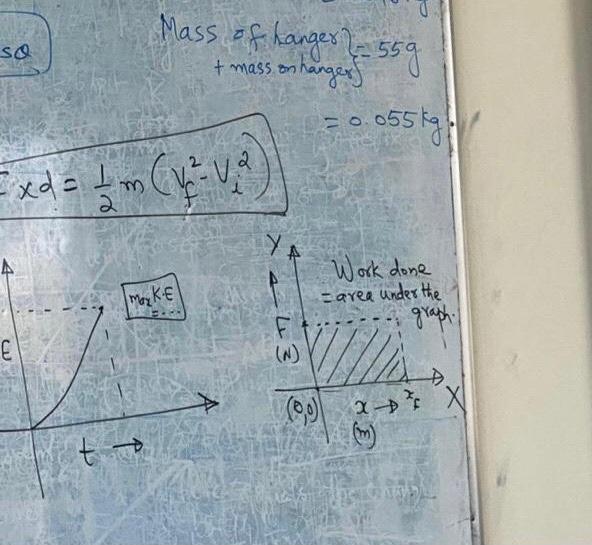 Mass of hanger
+ mass on hanger } = 55g
= 0.055 kg.
sθ
F x d = 1/2 m (V_f^2 - V_i^2)
Max K.E
E
t →
Y
Work done
= area under the
graph.
F
(N)
(0,0)
x → x_f
X
(m)